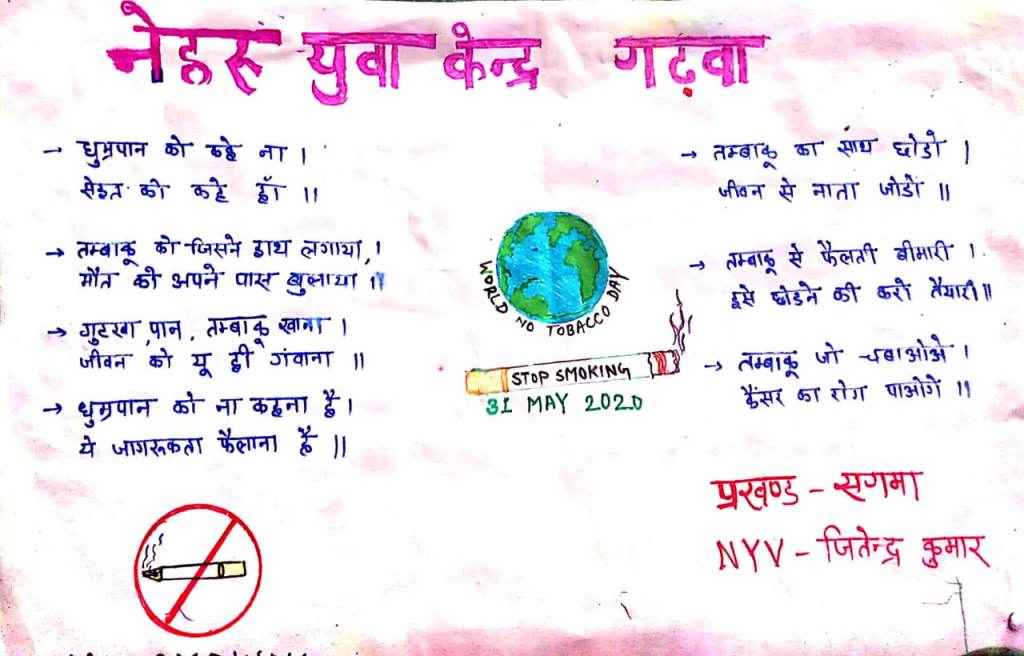 नेहरू युवा केन्द्र गढ़वा
→ धुम्रपान को कहे ना ।
सेहत को कहे हाँ ॥
→ तम्बाकू को जिसने हाथ लगाया, ।
मौत को अपने पास बुलाया ॥
→ गुटखा, पान, तम्बाकू खाना ।
जीवन को यू ही गंवाना ॥
→ धुम्रपान को ना कहना है ।
ये जागरूकता फैलाना है ॥
WORLD NO TOBACCO DAY
STOP SMOKING
31 MAY 2020
→ तम्बाकू का साथ छोडो ।
जीवन से नाता जोडो ॥
→ तम्बाकू से फैलती बीमारी ।
इसे छोडने की करो तैयारी ॥
→ तम्बाकू जो चबाओओ ।
कैंसर का रोग पाओगे ॥
प्रखण्ड - सगमा
NYV - जितेन्द्र कुमार